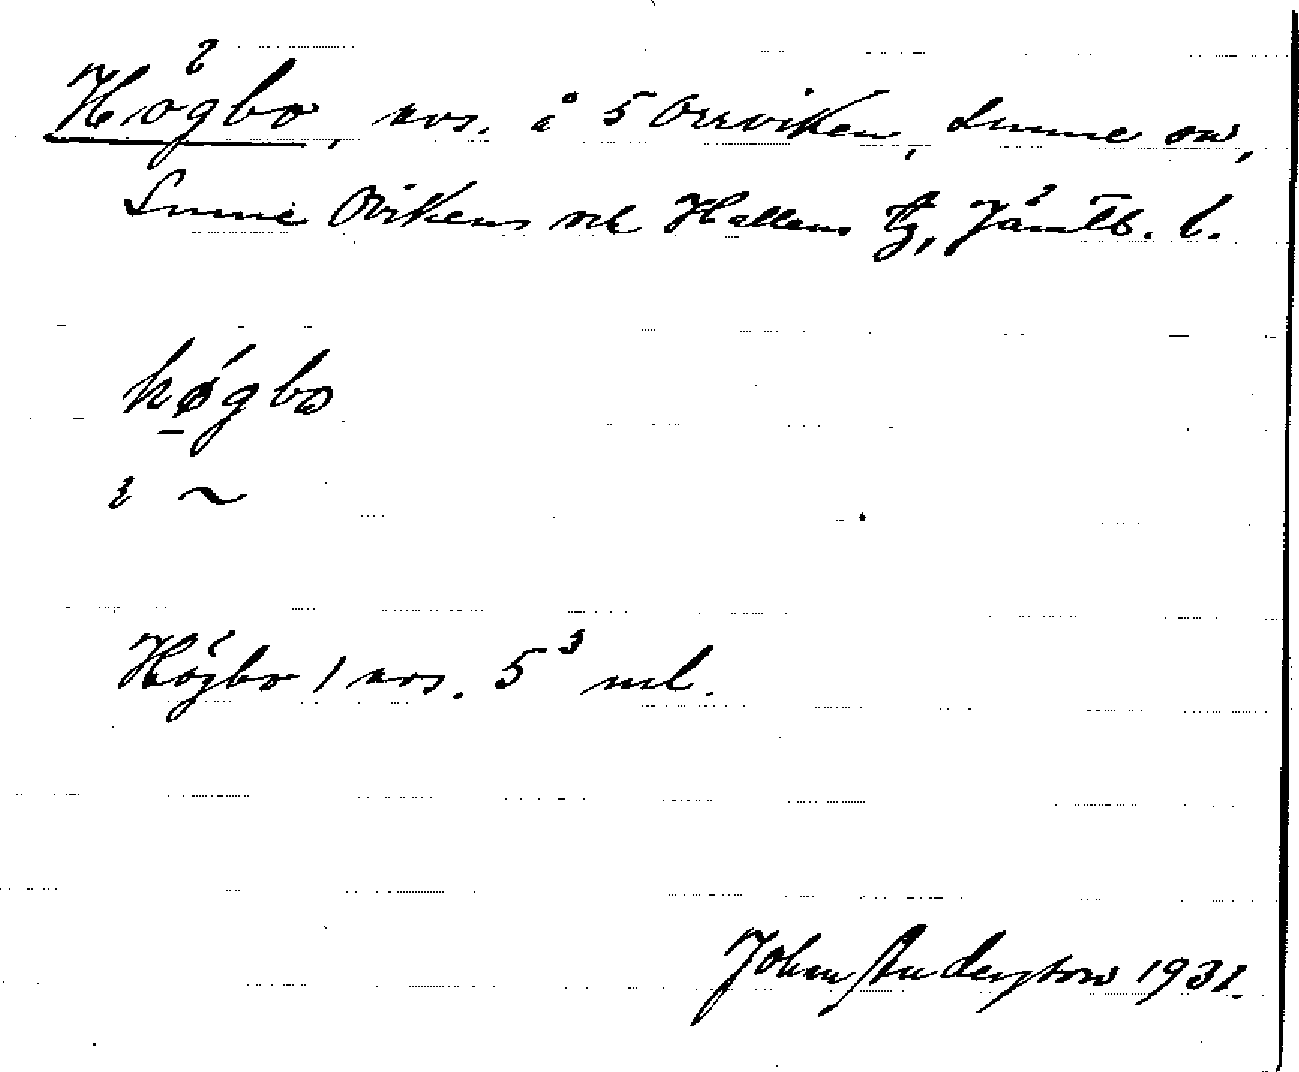 Högbo, avs. å 5 Orrviken, Sunne sn,
Sunne Ovikens och Hallens tg, Jämtl. l.
høgbo
i ~
Högbo / avs. 5³ ml.
John Andersson 1931.